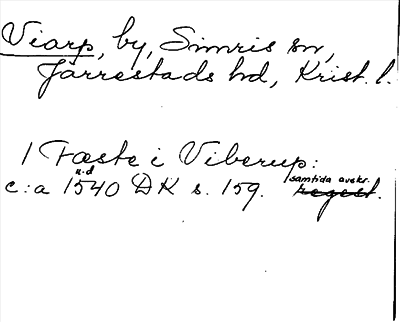 Viarp, by, Simris sn,
Järrestads hd, Krist. l.
1 Fæste i Viberup:
u.d samtida avskr.
c:a 1540 DK s. 159. regest.